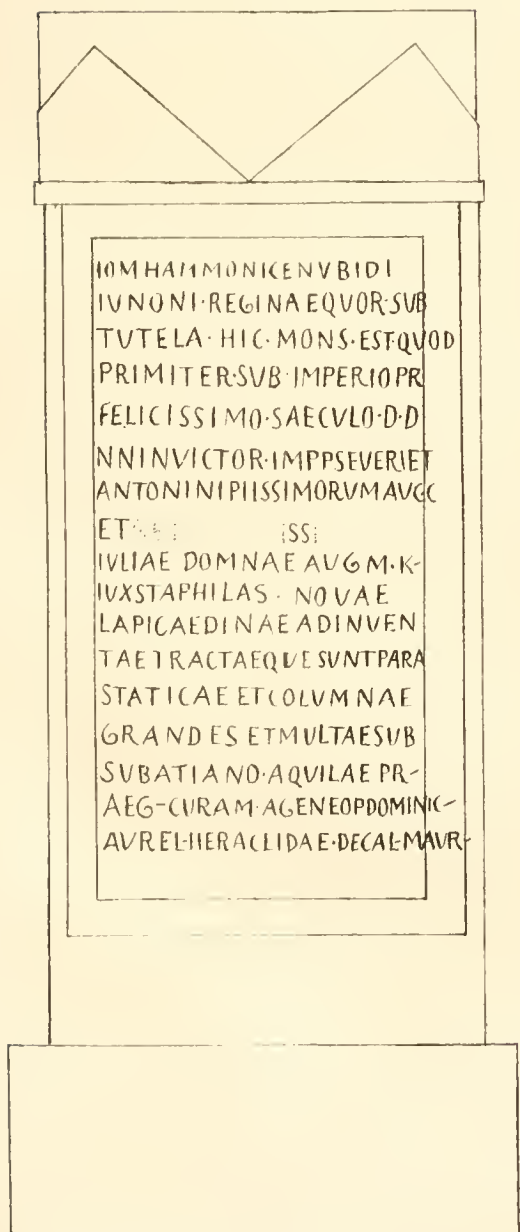 IOMHAMMONICENVBIDI
IVNONI·REGINAEQVOR·SVB
TVTELA·HIC·MONS·EST·QVOD
PRIMITER·SVB·IMPERIOPR
FELICISSIMO·SAECVLO·D·D
NNINVICTOR·IMPPSEVERIET
ANTONINIPIISSIMORVMAVGG
ET ISSI
IVLIAE DOMNAE AVGM·K-
IVXSTAPHILAS·NOVAE
LAPICAEDINAEADINVEN
TAETRACTAEQVESVNTPARA
STATICAE ETCOLVMNAE
GRANDES ETMVLTAESVB
SVBATIANO·AQVILAE PR-
AEG-CVRAM·AGENEOPDOMINIC-
AVREL·HERACLIDAE·DECAL·MAVR-